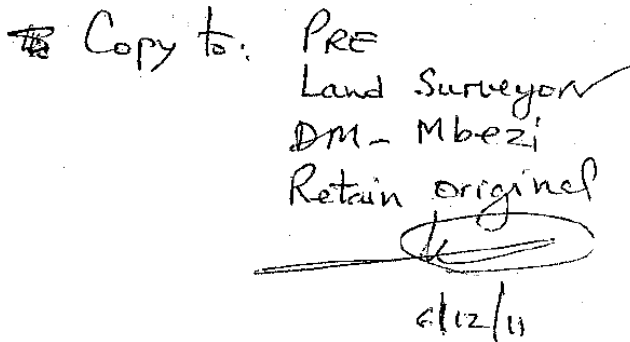 Copy to: PRE
Land Surveyor
DM - Mbezi
Retain original
6/12/11